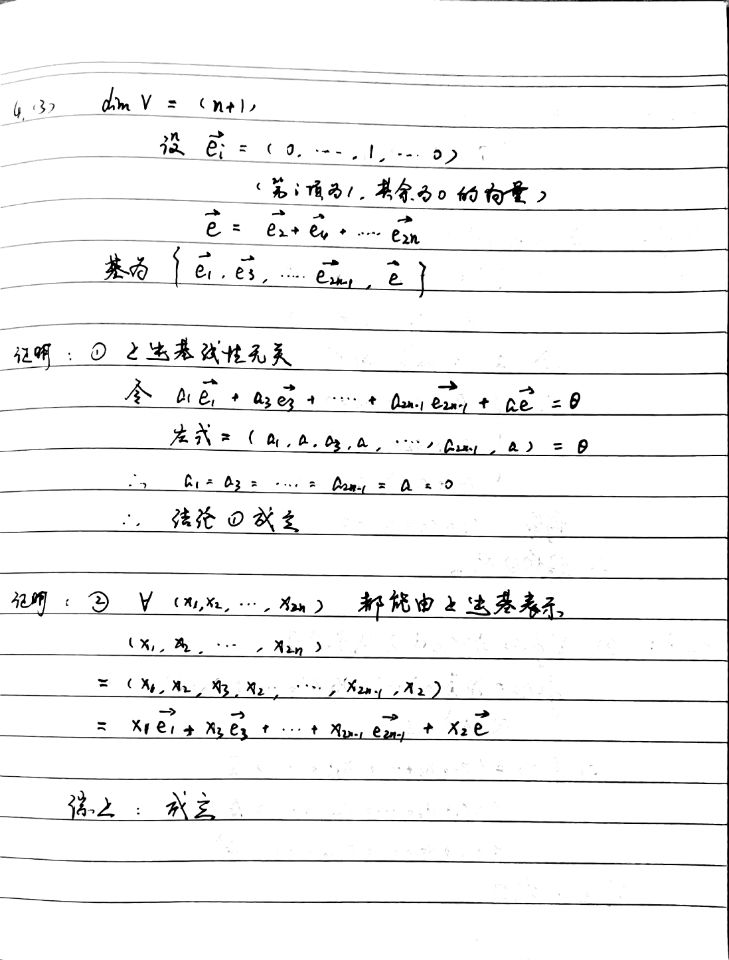 4.(3) dim V = (n+1)
设 e⃗ᵢ = (0, ···, 1, ··· 0)
(第i项为1, 其余为0的向量)
e⃗ = e⃗₂ + e⃗₄ + ···· e⃗₂ₙ
基为 { e⃗₁, e⃗₃, ···· e⃗₂ₙ₋₁, e⃗ }
证明: ① 上述基线性无关
令 a₁e⃗₁ + a₃e⃗₃ + ···· + a₂ₙ₋₁e⃗₂ₙ₋₁ + ae⃗ = θ
左式 = (a₁, a, a₃, a, ····, a₂ₙ₋₁, a) = θ
∴ a₁ = a₃ = ···· = a₂ₙ₋₁ = a = 0
∴ 结论①成立
证明: ② ∀ (x₁,x₂, ···, x₂ₙ) 都能由上述基表示
(x₁, x₂, ···, x₂ₙ)
= (x₁, x₂, x₃, x₂, ····, x₂ₙ₋₁, x₂)
= x₁e⃗₁ + x₃e⃗₃ + ··· + x₂ₙ₋₁e⃗₂ₙ₋₁ + x₂e⃗
综上: 成立